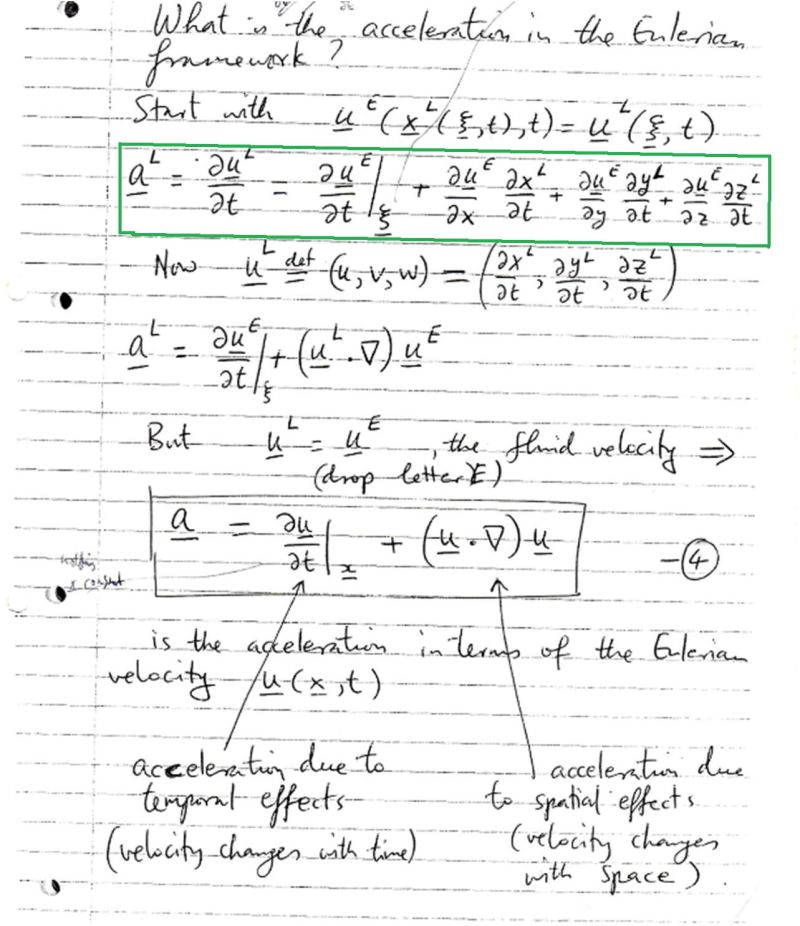 What is the acceleration in the Eulerian
framework?
Start with u̲^E(x̲^L(ξ̲,t),t) = u̲^L(ξ̲,t)
a̲^L = ∂u̲^L/∂t = ∂u̲^E/∂t|_ξ̲ + ∂u̲^E/∂x ∂x^L/∂t + ∂u̲^E/∂y ∂y^L/∂t + ∂u̲^E/∂z ∂z^L/∂t
Now u̲^L def= (u,v,w) = (∂x^L/∂t, ∂y^L/∂t, ∂z^L/∂t)
a̲^L = ∂u̲^E/∂t|_ξ + (u̲^L·∇)u̲^E
But u̲^L = u̲^E, the fluid velocity ⇒
(drop letter E)
a̲ = ∂u̲/∂t|_x̲ + (u̲·∇)u̲ -④
x constant
is the acceleration in terms of the Eulerian
velocity u̲(x̲,t)
acceleration due to
temporal effects
(velocity changes with time)
acceleration due
to spatial effects
(velocity changes
with space).